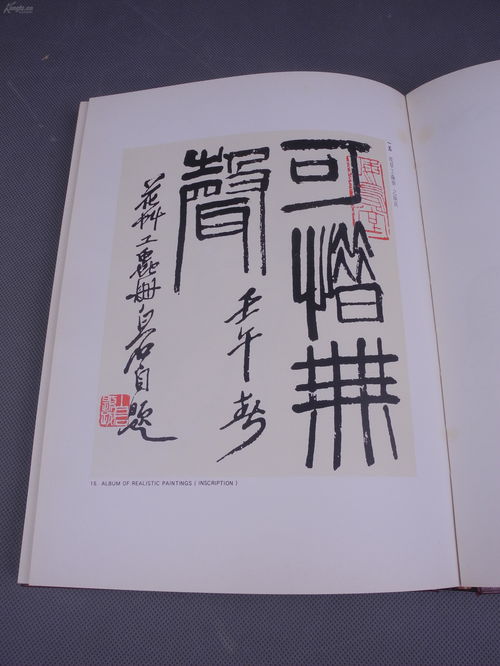 可惜無
聲
壬午春
花艸工蟲冊白石自題
15 ALBUM OF REALISTIC PAINTINGS ( INSCRIPTION )